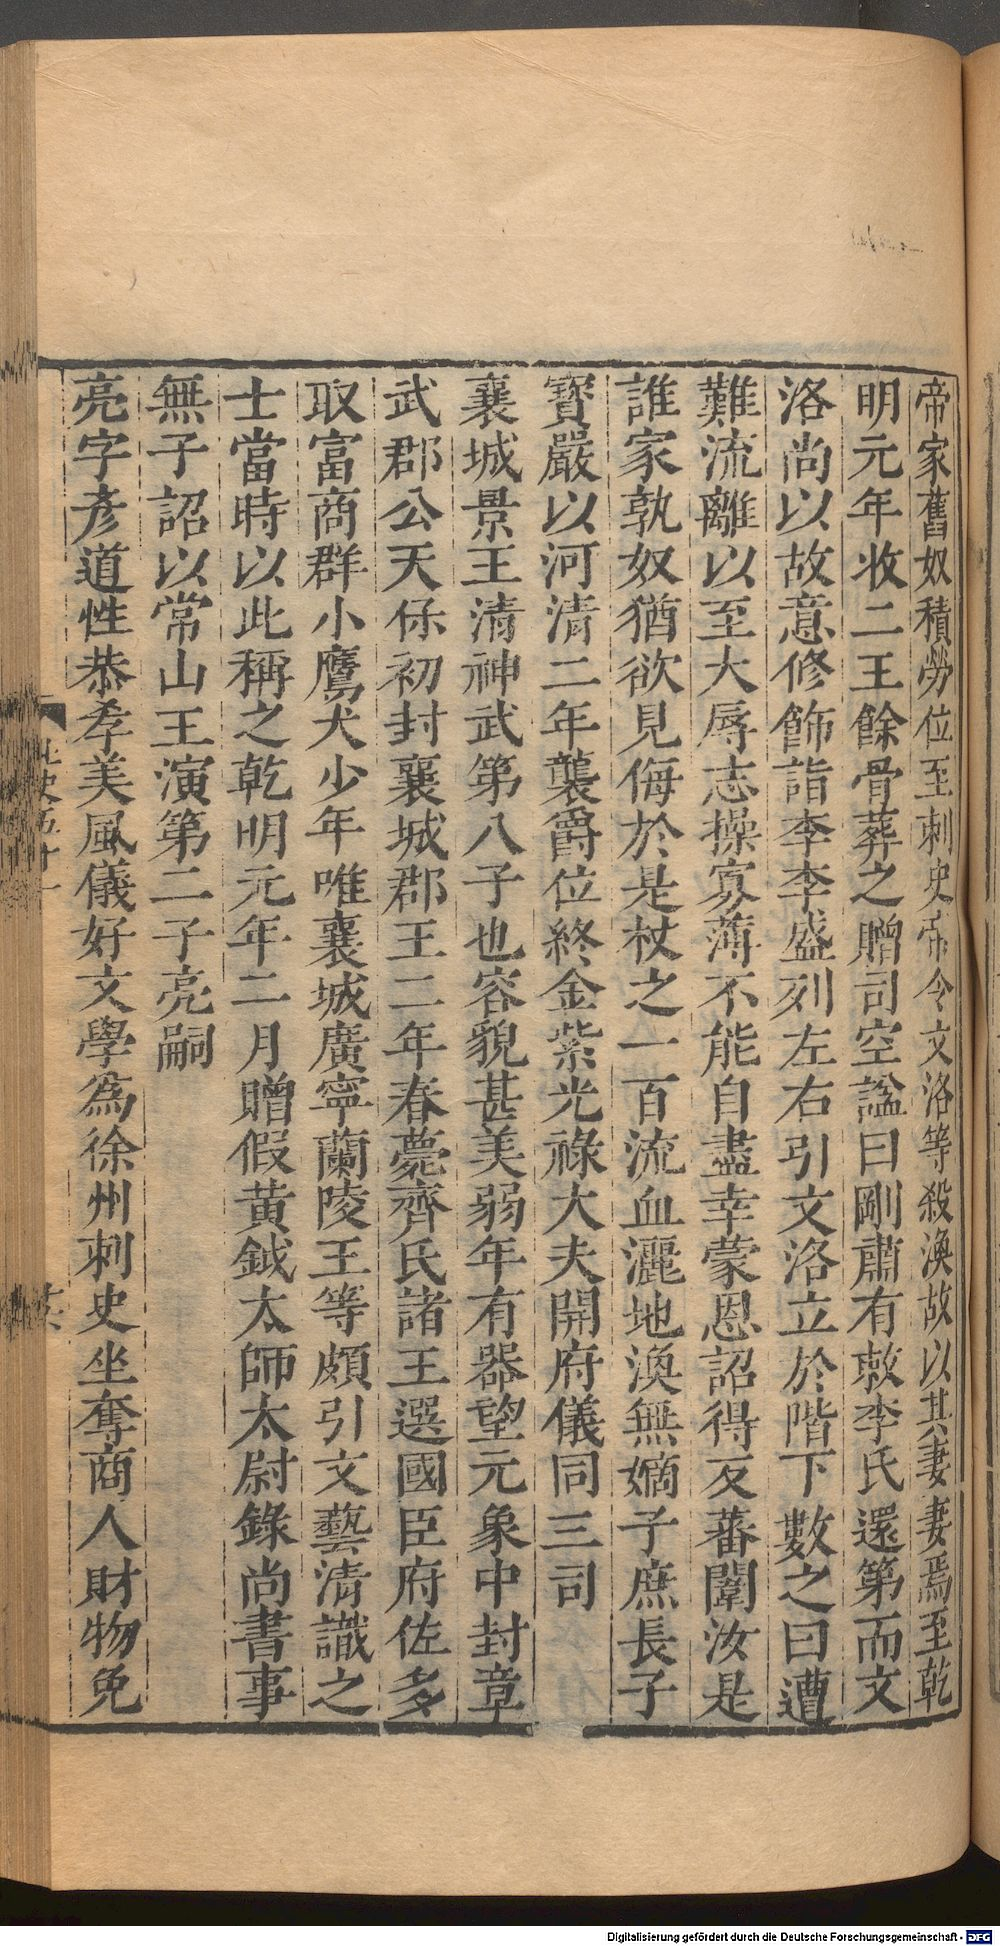 帝家舊奴積勞位至刺史帝令文洛等殺渙故以其妻妻焉至乾
明元年收二王餘骨葬之贈司空諡曰剛肅有敕李氏還第而文
洛尚以故意修飾詣李李盛列左右引文洛立於階下數之曰遭
難流離以至大辱志操寡薄不能自盡幸蒙恩詔得反蕃闈汝是
誰家孰奴猶欲見侮於是杖之一百流血灑地渙無嫡子庶長子
寶嚴以河清二年襲爵位終金紫光祿大夫開府儀同三司
襄城景王淯神武第八子也容貌甚美弱年有器望元象中封章
武郡公天保初封襄城郡王二年春薨齊氏諸王選國臣府佐多
取富商群小鷹犬少年唯襄城廣寧蘭陵王等頗引文藝清識之
士當時以此稱之乾明元年二月贈假黃鉞太師太尉錄尚書事
無子詔以常山王演第二子亮嗣
亮字彥道性恭孝美風儀好文學為徐州刺史坐奪商人財物免
北史五十一
Digitalisierung gefördert durch die Deutsche Forschungsgemeinschaft - DFG